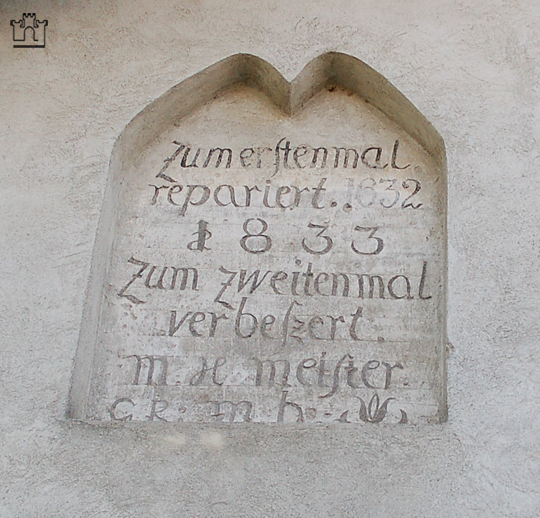 Zum erſtenmal
repariert. 1632
1833
Zum zweitenmal
verbeſzert.
m. H meiſter.
G R. m. h.